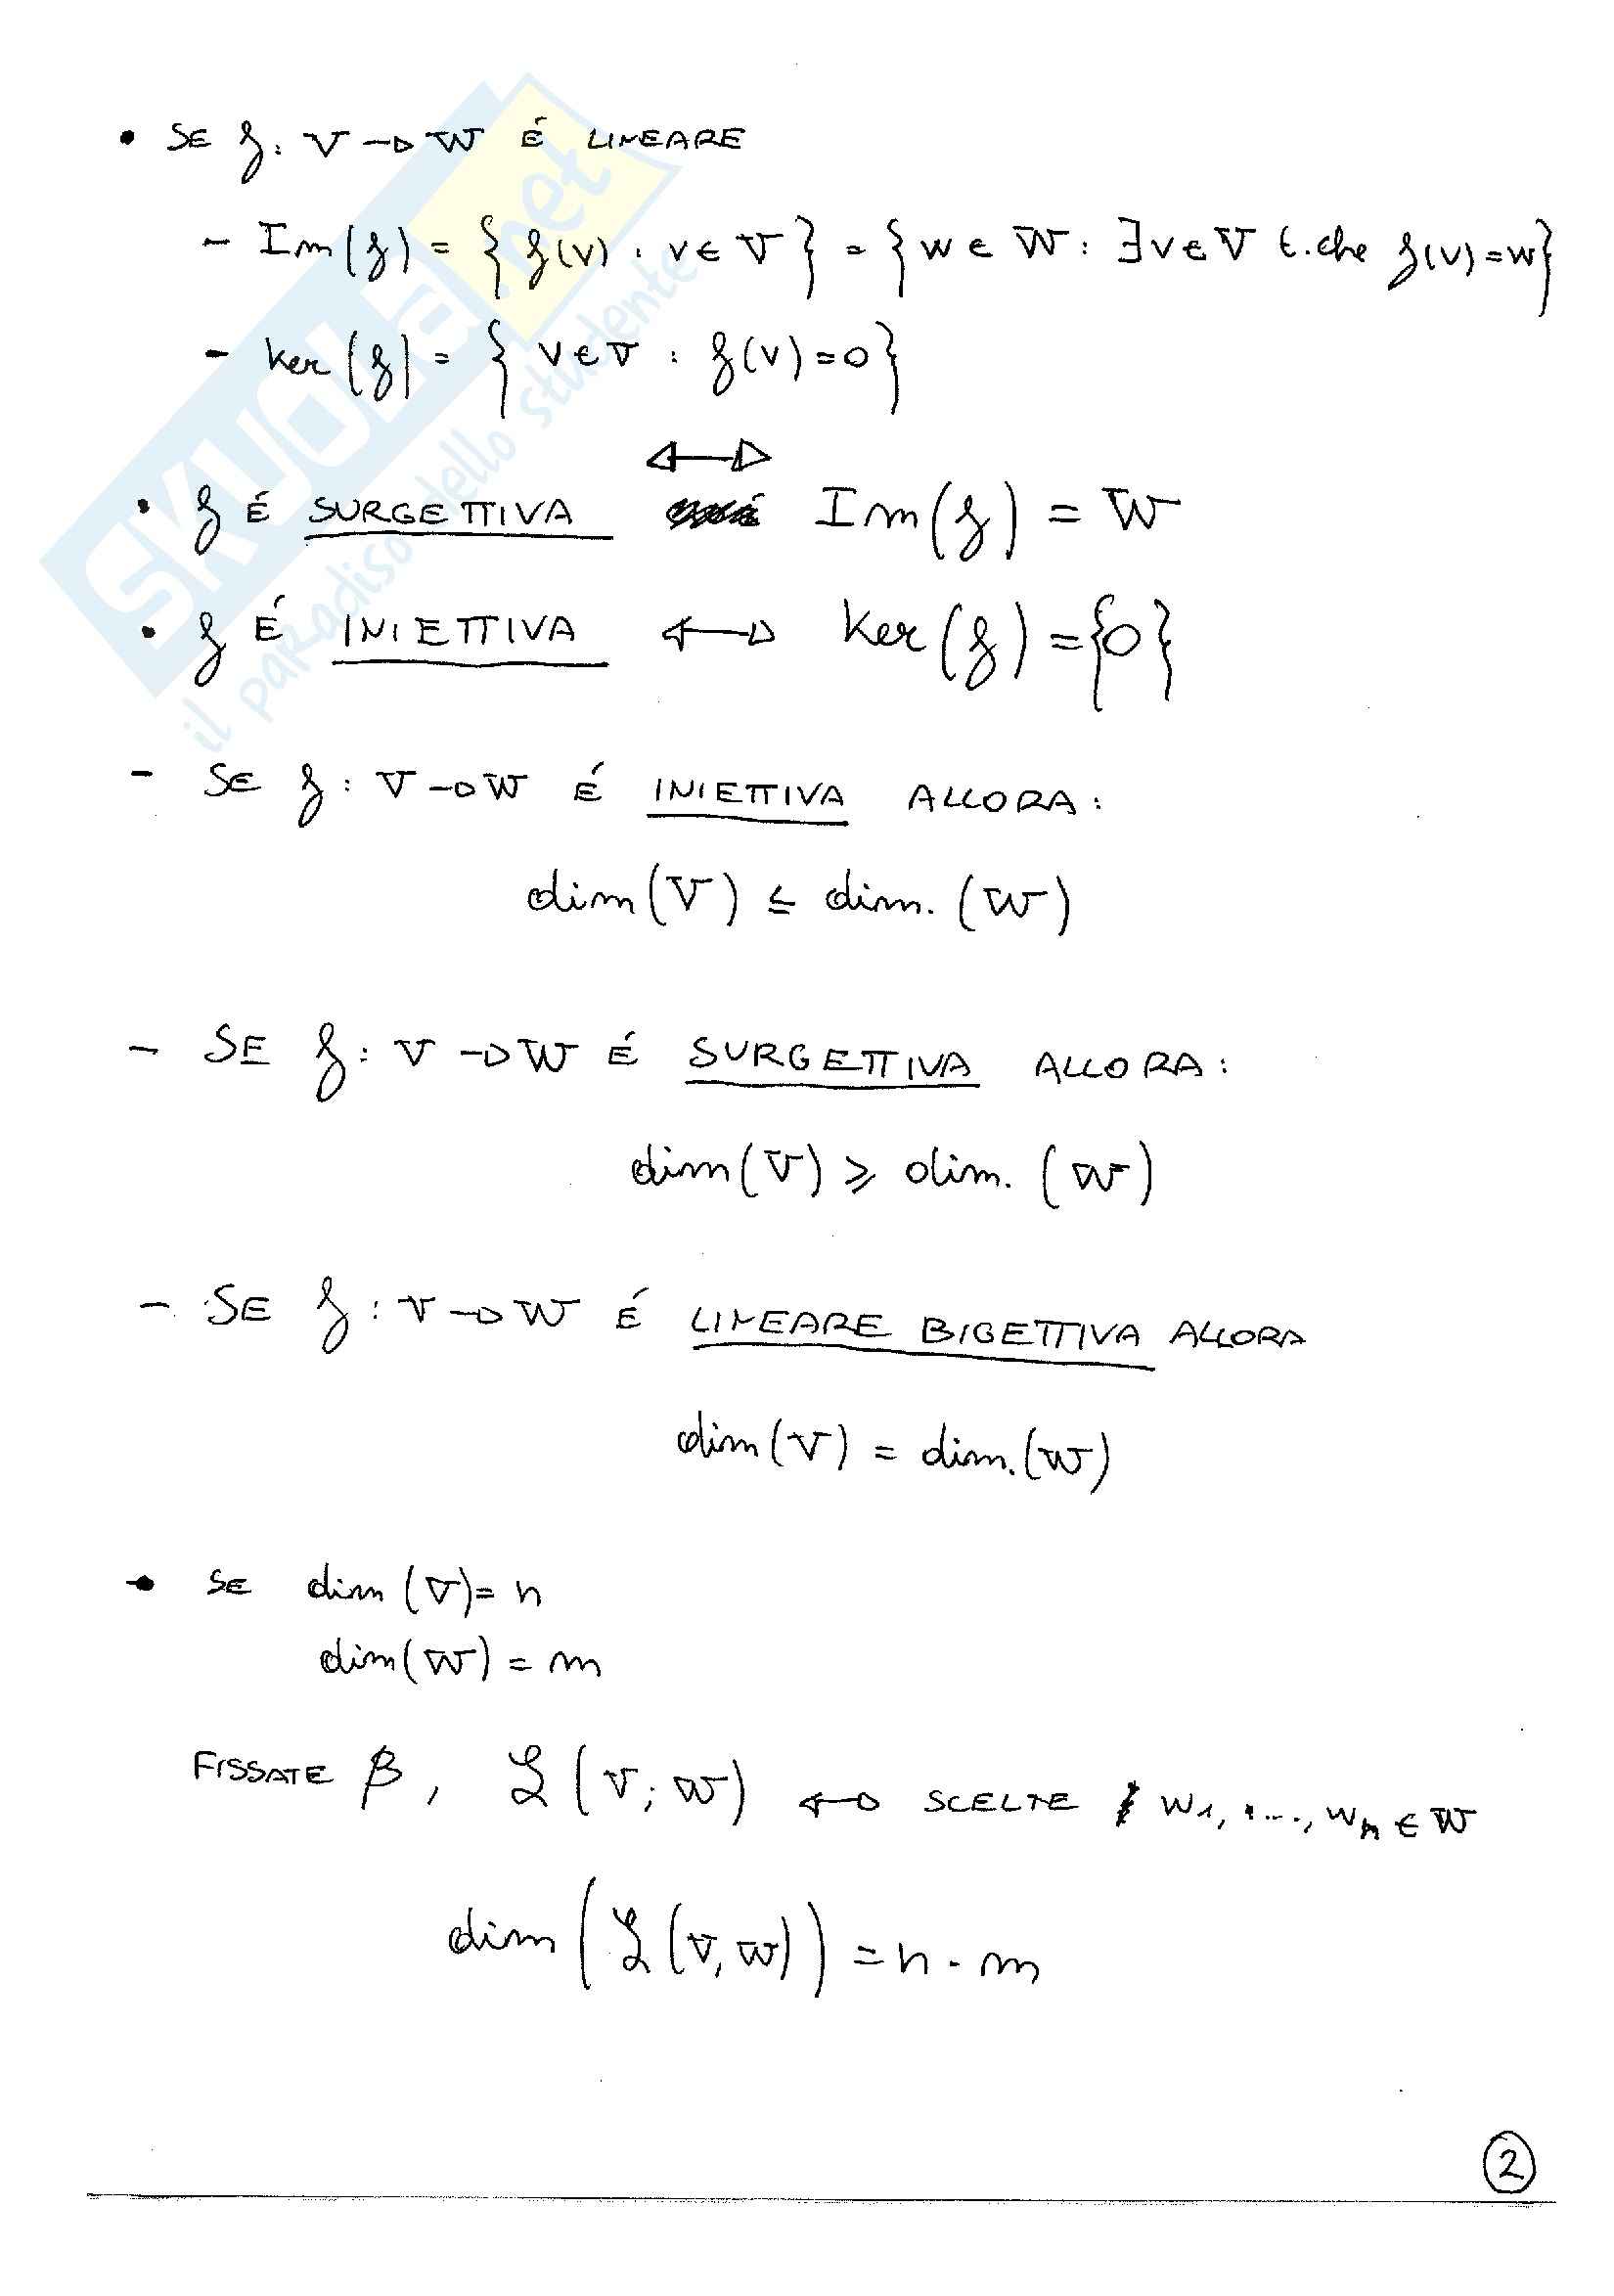 • SE f: V → W É LINEARE
– Im(f) = { f(v) : v ∈ V } = { w ∈ W : ∃ v ∈ V t.che f(v)=w }
– Ker(f) = { v ∈ V : f(v)=0 }
• f É SURGETTIVA ↔ Im(f) = W
• f É INIETTIVA ↔ Ker(f) = {0}
– SE f: V → W É INIETTIVA ALLORA:
dim(V) ≤ dim.(W)
– SE f: V → W É SURGETTIVA ALLORA:
dim(V) ⩾ dim.(W)
– SE f: V → W É LINEARE BIGETTIVA ALLORA
dim(V) = dim.(W)
• SE dim(V)= n
dim(W) = m
FISSATE β, ℒ(V; W) ↔ SCELTE w₁, ...., wₙ ∈ W
dim(ℒ(V, W)) = n · m
2
SKUOLA.net
il paradiso dello studente